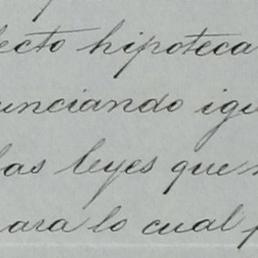 ecto hipoteca
unciando igu
las leyes que
para lo cual p